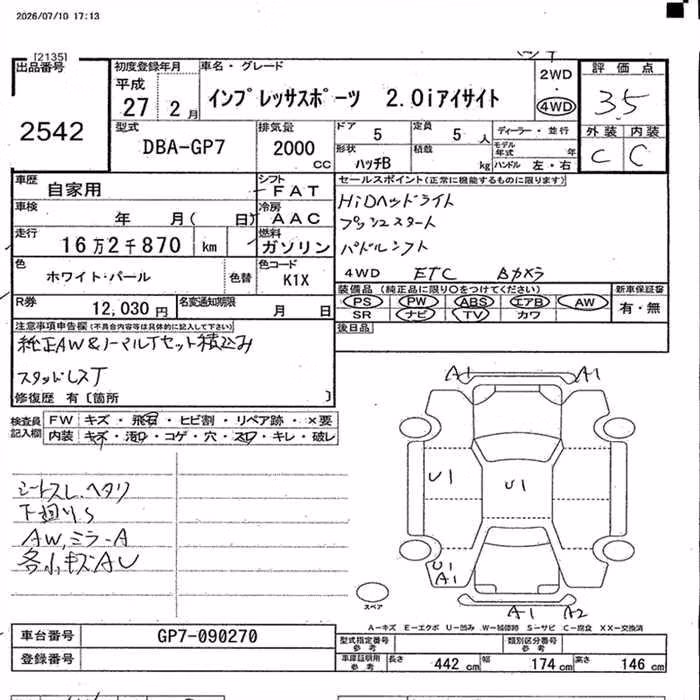 2026/07/10 17:13
[2135]
出品番号
2542
初度登録年月
平成
27 2月
車名・グレード
インプレッサスポーツ 2.0iアイサイト
2WD
・
4WD
評価点
3.5
外装 内装
C C
型式
DBA-GP7
排気量
2000
CC
ドア
5
定員
5 人
ディーラー・並行
モデル年式 年
形状
ハッチB
積載
kg
ハンドル 左・右
車歴
自家用
シフト
FAT
車検
年 月( 日)
冷房
AAC
走行
16万2千870 km
燃料
ガソリン
色
ホワイト・パール
色替
色コード
K1X
R券
12,030円
名変通知期限
月 日
セールスポイント(正常に機能するものに限ります)
HiDヘッドライト
プッシュスタート
パドルシフト
4WD ETC Bカメラ
装備品(純正品に限り○をつけてください)
PS PW ABS エアB AW
SR ナビ TV カワ
新車保証書
有・無
後日品
注意事項申告欄(不具合内容等は具体的に記入して下さい)
純正AW&ノーマルTセット積込み
スタッドレスT
修復歴 有〔箇所 〕
検査員記入欄
FW キズ・飛石・ヒビ割・リペア跡・×要
内装 キズ・汚れ・コゲ・穴・スレ・キレ・破レ
シートスレ、ヘタリ
下廻りS
AW、ミラーA
各小キズAU
A1 A1
U1
U1
U1
A1
A1 A2
スペア
A-キズ E-エクボ U-凹み W-補修跡 S-サビ C-腐食 XX-交換済
車台番号
GP7-090270
登録番号
型式指定番号
参考
類別区分番号
参考
車庫証明用
参考
長さ 442 cm 幅 174 cm 高さ 146 cm